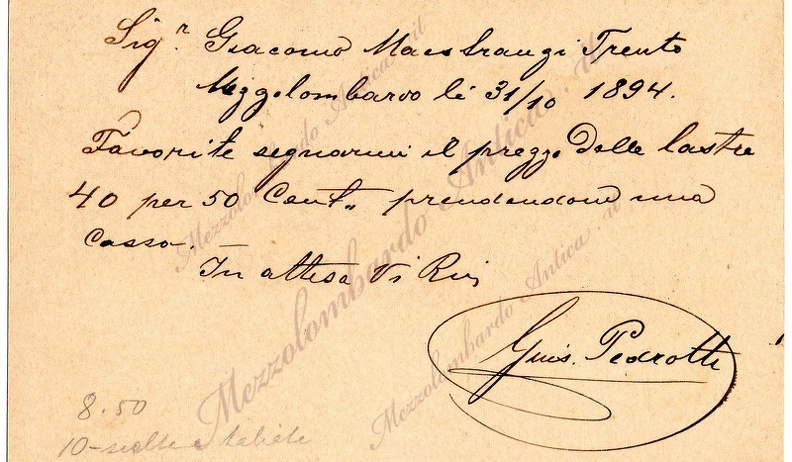 Sigr. Giacomo Maestranzi Trento
Mezzolombardo li 31/10 1894.
Favorite segnarmi il prezzo delle lastre
40 per 50 Cent. prendendone una
Cassa.
In attesa Vi Riv
Guis. Pedrotti
8.50
10-scelte
Mezzolombardo Antica.it
Mezzolombardo Antica.it
Mezzolombardo Antica.it